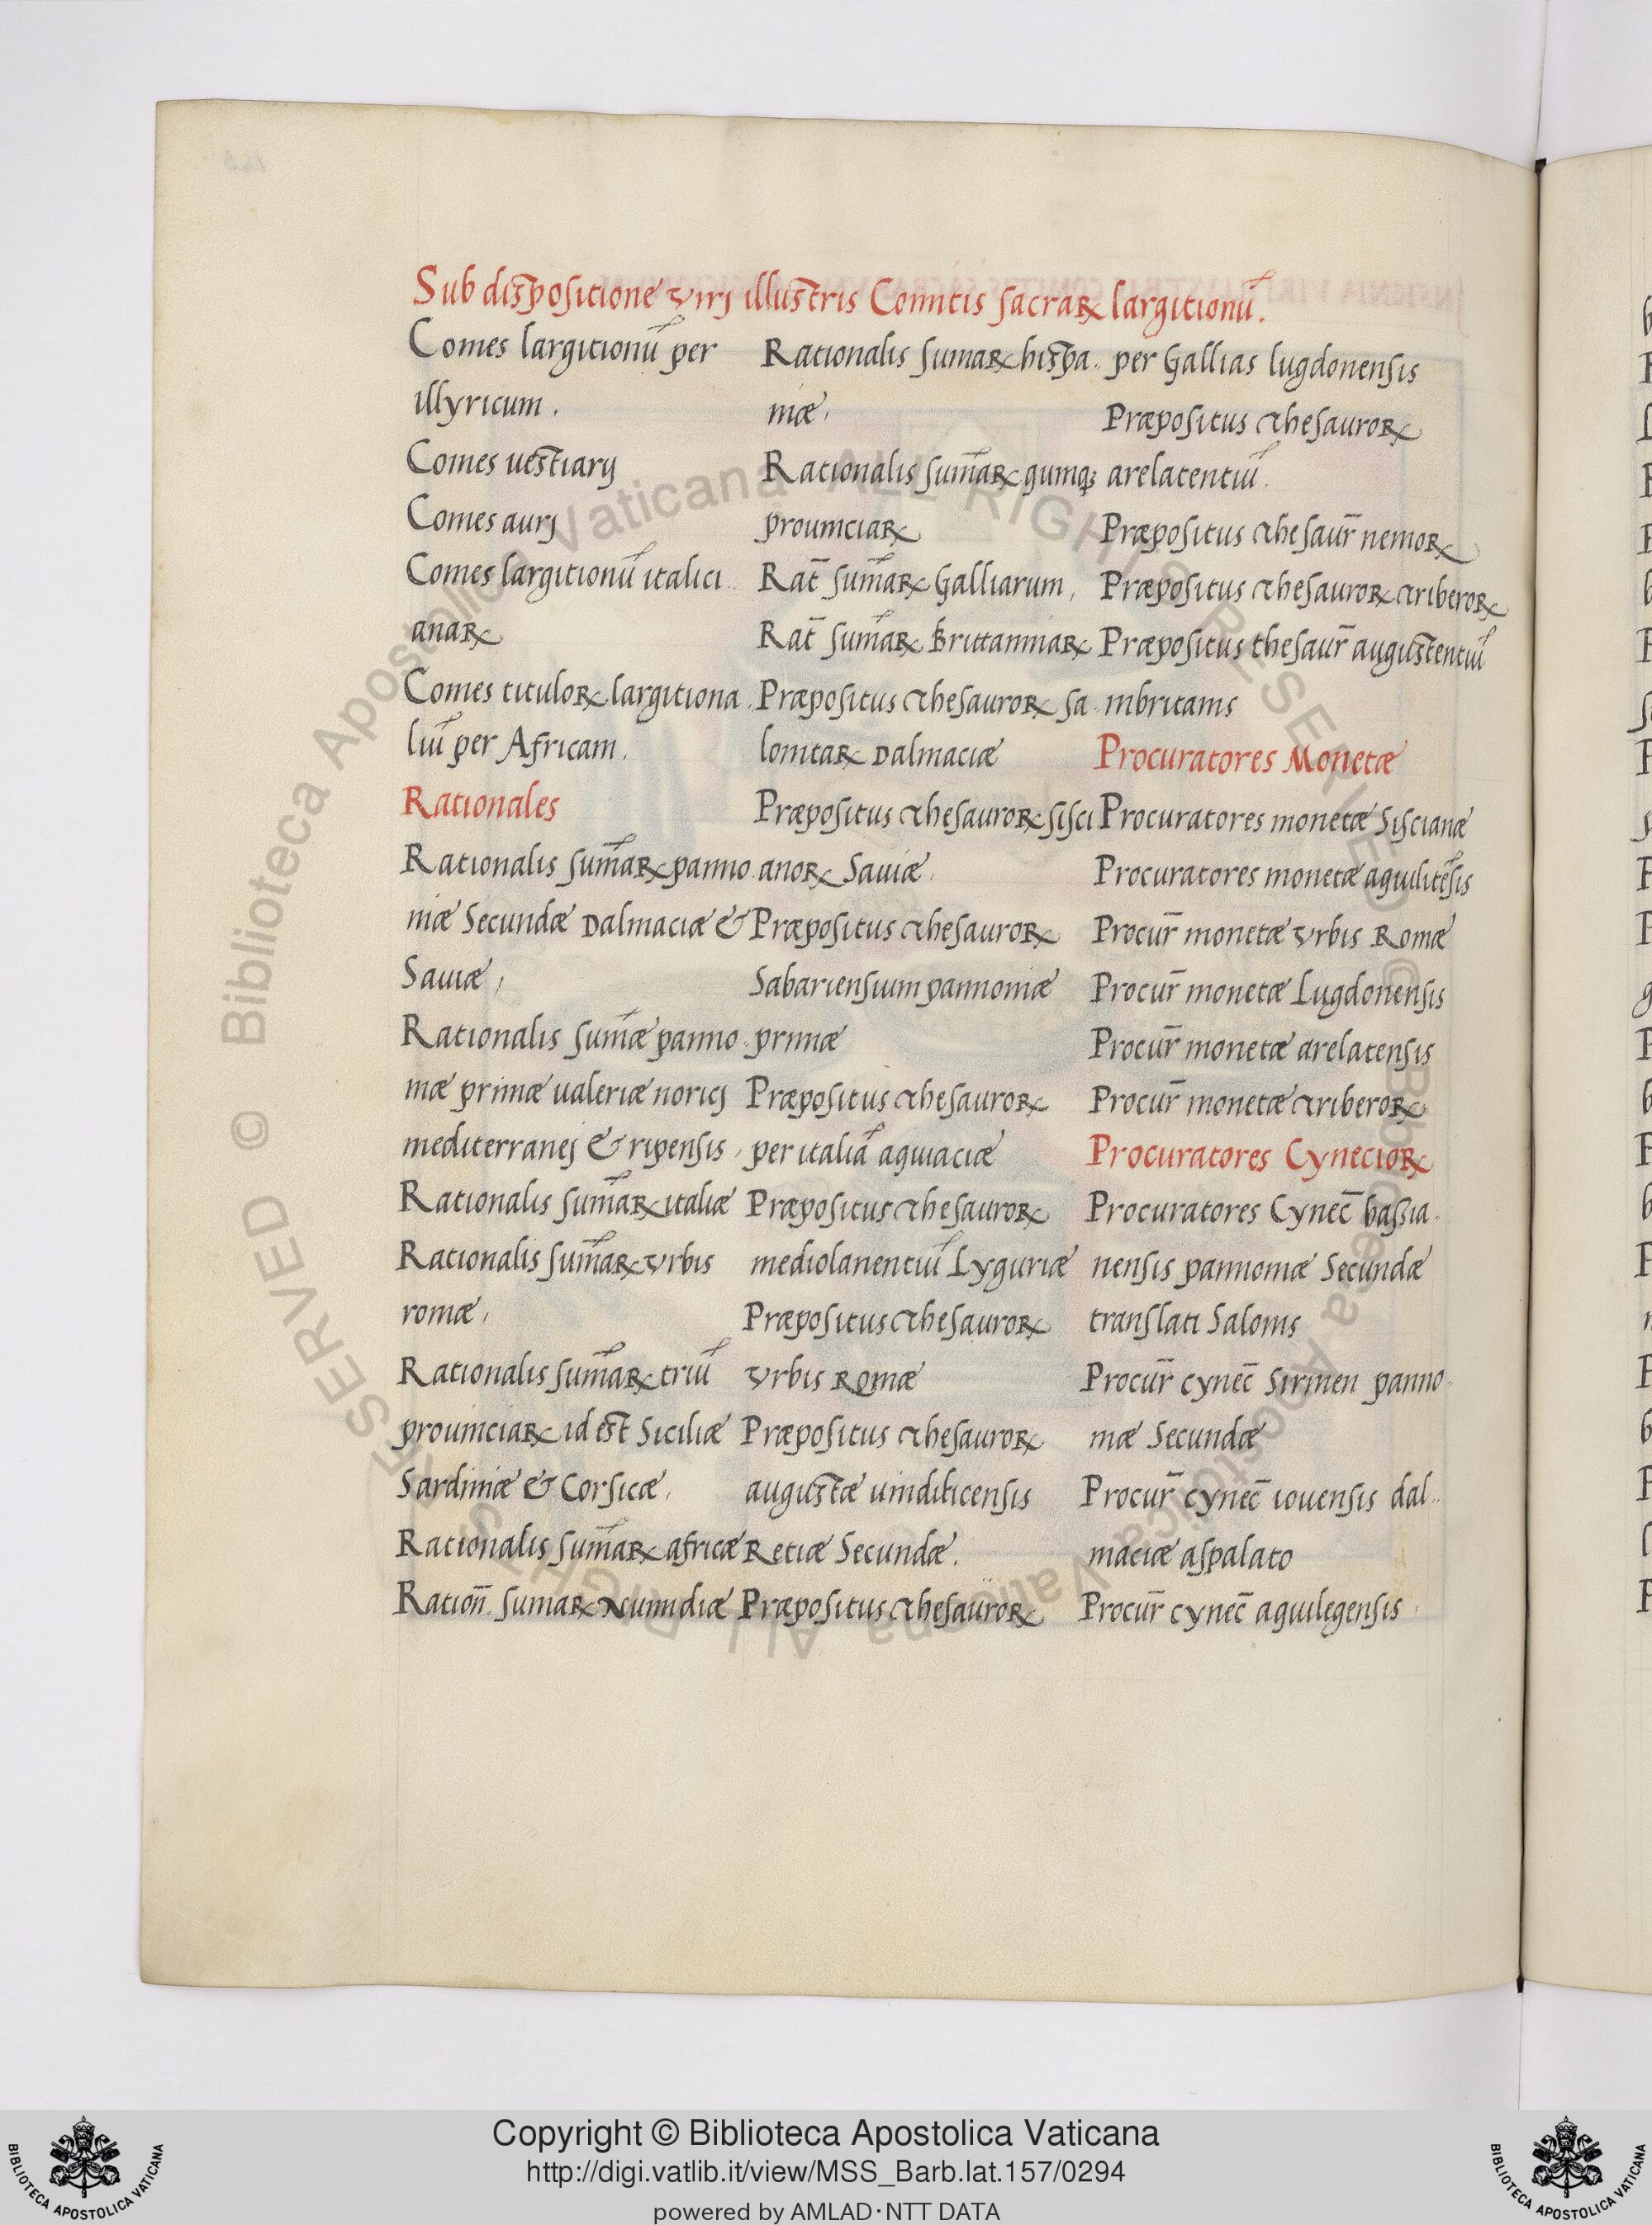 Sub dispositione virj illustris Comitis sacraꝝ largitionū.
Comes largitionū per
illyricum.
Comes uestiarij
Comes aurj
Comes largitionū italici
anaꝝ
Comes tituloꝝ largitiona
liū per Africam.
Rationales
Rationalis sum̄aꝝ panno
niæ Secundæ Dalmaciæ &
Sauiæ,
Rationalis sum̄æ panno
niæ primæ ualeriæ noricj
mediterranej & ripensis,
Rationalis sum̄aꝝ italiæ
Rationalis sum̄aꝝ vrbis
romæ,
Rationalis sum̄aꝝ triū
prouinciaꝝ id est Siciliæ
Sardiniæ & Corsicæ,
Rationalis sum̄aꝝ africæ
Ration̄. sumaꝝ Numidiæ
Rationalis sumaꝝ hispa
niæ,
Rationalis sum̄aꝝ quinqꝫ
prouinciaꝝ
Rat̄ sum̄aꝝ Galliarum,
Rat̄ sum̄aꝝ Brittanniaꝝ
Præpositus thesauroꝝ sa
lonitaꝝ Dalmaciæ
Præpositus thesauroꝝ sisci
anoꝝ Sauiæ,
Præpositus thesauroꝝ
Sabariensium pannoniæ
primæ
Præpositus thesauroꝝ
per italiā aquiaciæ
Præpositus thesauroꝝ
mediolanentiū Lyguriæ
Præpositus thesauroꝝ
vrbis Romæ
Præpositus thesauroꝝ
augustæ uinditicensis
Retiæ Secundæ.
Præpositus thesauroꝝ
per Gallias lugdonensis
Præpositus thesauroꝝ
arelatentiū.
Præpositus thesaur̄ nemoꝝ
Præpositus thesauroꝝ triberoꝝ
Præpositus thesaur̄ augustentiū
inbritanis
Procuratores Monetæ
Procuratores monetæ Siscianæ
Procuratores monetæ aquilitēsis
Procur̄ monetæ vrbis Romæ
Procur̄ monetæ Lugdonensis
Procur̄ monetæ arelatensis
Procur̄ monetæ triberoꝝ
Procuratores Cynecioꝝ
Procuratores Cynec̄ bassia
nensis pannoniæ Secundæ
translati Salonis
Procur̄ cynec̄ Sirmen panno
niæ Secundæ
Procur̄ cynec̄ iouensis dal
maciæ aspalato
Procur̄ cynec̄ aquilegensis
Copyright © Biblioteca Apostolica Vaticana
http://digi.vatlib.it/view/MSS_Barb.lat.157/0294
powered by AMLAD·NTT DATA
BIBLIOTECA APOSTOLICA VATICANA
BIBLIOTECA APOSTOLICA VATICANA